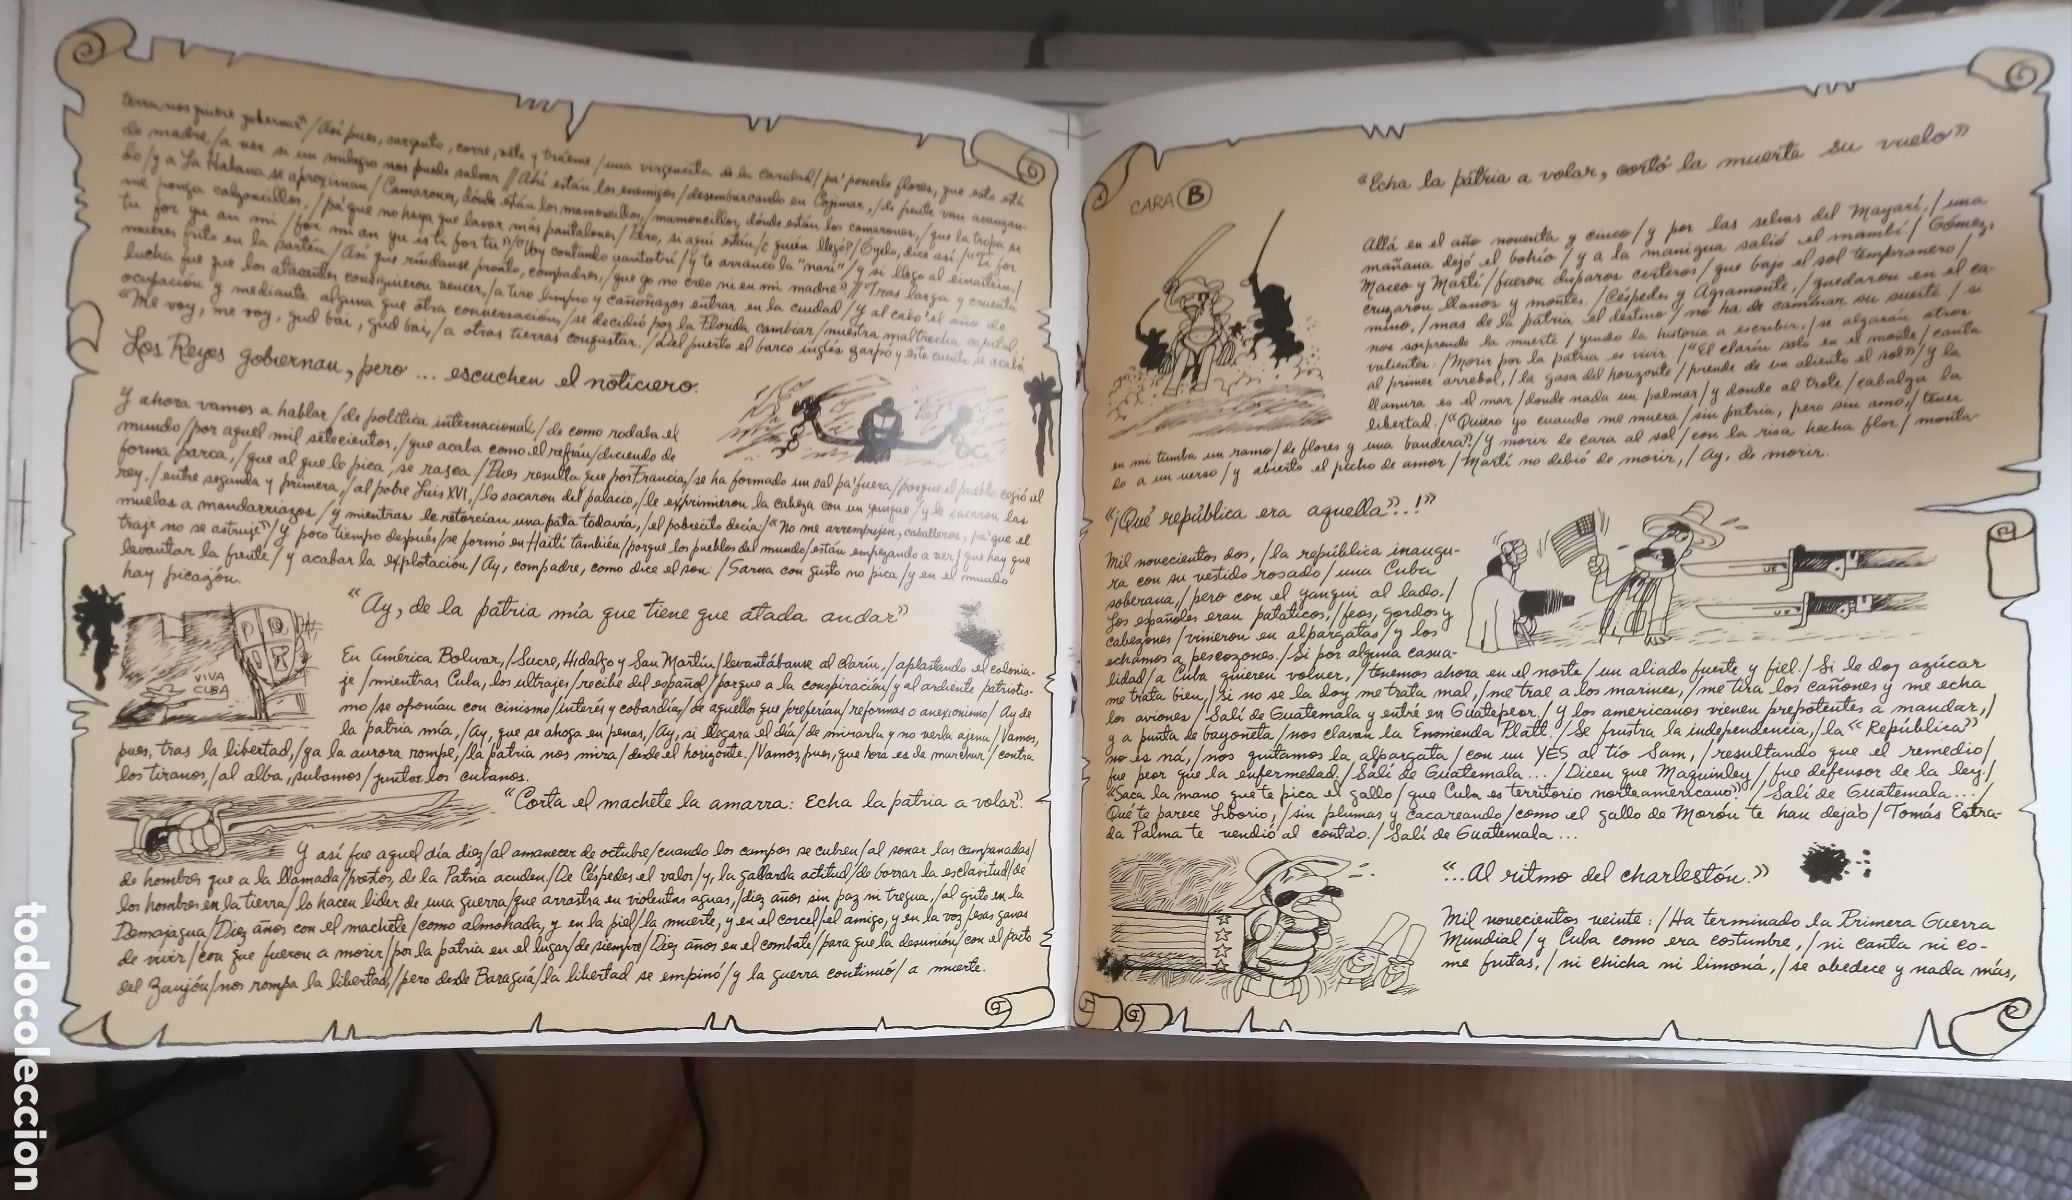 terra, nos quiere gobernar" / Así pues, sargento, corre, vete y tráeme / una virgencita de la caridad / pa' ponerle flores, que esto está
de madre, / a ver si un milagro nos puede salvar // Ahí están los enemigos / desembarcando en Cojímar, / de frente van avanzan-
do / y a La Habana se aproximan / Camarones, dónde están los mamoncillos, / mamoncillos, dónde están los camarones, / que la tropa se
me ponga calzoncillos, / pa' que no haya que lavar más pantalones / Pero, si aquí están / ¿quién llegó? / Óyelo, dice así /
mueres frito en la sartén / Así que ríndanse pronto, compadres, / que yo no creo ni en mi madre" // Tras larga y cruenta
lucha fue que los atacantes consiguieron vencer, / a tiro limpio y cañonazos entrar en la ciudad / y al cabo el año de
ocupación y mediante alguna que otra conversación, / se decidió por la Florida cambiar / nuestra maltrecha capital.
"Me voy, me voy, gud bai, gud bai, / a otras tierras conquistar. / Del puerto el barco inglés zarpó y este cuento se acabó.
Los Reyes gobiernan, pero ... escuchen el noticiero.
Y ahora vamos a hablar / de política internacional, / de como rodaba el
mundo / por aquel mil setecientos, / que acaba como el refrán / diciendo de
forma parca, / que al que le pica, se rasca. / Pues resulta que por Francia, / se ha formado un sal pa' fuera / porque el pueblo cogió al
rey, / entre segunda y primera, / al pobre Luis XVI, / lo sacaron del palacio, / le exprimieron la cabeza con un yunque / y le sacaron las
muelas a mandarriazos / y mientras le retorcían una pata todavía, / el pobrecito decía: / "No me arrempujen, caballeros, pa' que el
traje no se astruje" / Y poco tiempo después / se formó en Haití también / porque los pueblos del mundo / están empezando a ver / que hay que
levantar la frente / y acabar la explotación / Ay, compadre, como dice el son: / Sarna con gusto no pica / y en el mundo
hay picazón.
"Ay, de la patria mía que tiene que atada andar"
VIVA
CUBA
En América Bolívar, / Sucre, Hidalgo y San Martín / levantábanse al clarín, / aplastando el colonia-
je / mientras Cuba, los ultrajes / recibe del español / porque a la conspiración / y al ardiente patriotis-
mo / se oponían con cinismo / interés y cobardía, / de aquellos que preferían / reformas o anexionismo / Ay de
la patria mía, / Ay, que se ahoga en penas, / Ay, si llegara el día / de mirarla y no verla ajena / Vamos,
pues, tras la libertad, / ya la aurora rompe, / la patria nos mira / desde el horizonte. / Vamos, pues, que hora es de marchar / contra
los tiranos, / al alba, subamos / juntos los cubanos.
"Corta el machete la amarra: Echa la patria a volar".
Y así fue aquel día diez / al amanecer de octubre / cuando los campos se cubren / al sonar las campanadas /
de hombres que a la llamada / prestos, de la Patria acuden. / De Céspedes el valor / y, la gallarda actitud / de borrar la esclavitud / de
los hombres en la tierra / lo hacen líder de una guerra / que arrastra en violentas aguas, / diez años sin paz ni tregua, / al grito en la
Demajagua / Diez años con el machete / como almohada, y en la piel / la muerte, y en el corcel / el amigo, y en la voz / esas ganas
de vivir / con que fueron a morir / por la patria en el lugar / de siempre / Diez años en el combate / para que la desunión / con el pacto
del Zanjón / nos rompa la libertad, / pero desde Baraguá / la libertad se empinó / y la guerra continuó / a muerte.
CARA B
"Echa la patria a volar, cortó la muerte su vuelo"
Allá en el año noventa y cinco / y por las selvas del Mayarí, / una
mañana dejó el bohío / y a la manigua salió el mambí / Gómez,
Maceo y Martí / fueron disparos certeros / que bajo el sol tempranero /
cruzaron llanos y montes. / Céspedes y Agramonte, / quedaron en el ca-
mino, / mas de la patria el destino / no ha de cambiar su suerte / si
nos sorprende la muerte / yendo la historia a escribir, / se alzarán otros
valientes: / Morir por la patria es vivir. / "El clarín solo en el monte / canta
al primer arrebol, / la gasa del horizonte / prende de un aliento el sol" / y la
llanura es el mar / donde nada un palmar / y donde al trote / cabalga la
libertad. / "Quiero yo cuando me muera / sin patria, pero sin amo / tener
en mi tumba un ramo / de flores y una bandera" / y morir de cara al sol / con la risa hecha flor / monta-
do a un verso / y abierto el pecho de amor / Martí no debió de morir, / Ay, de morir.
"¡Qué república era aquella"..!"
Mil novecientos dos, / la república inaugu-
ra con su vestido rosado / una Cuba
soberana, / pero con el yanqui al lado. /
Los españoles eran patáticos, / feos, gordos y
cabezones / vinieron en alpargatas / y los
echamos a pescozones. / Si por alguna casua-
lidad / a Cuba quieren volver, / tenemos ahora en el norte / un aliado fuerte y fiel. / Si le doy azúcar
me trata bien, / Si no se la doy me trata mal, / me trae a los marines, / me tira los cañones y me echa
los aviones / Salí de Guatemala y entré en Guatepeor. / Y los americanos vienen prepotentes a mandar, /
y a punta de bayoneta / nos clavan la Enmienda Platt. / Se frustra la independencia, / la "República"
no es ná, / nos quitamos la alpargata / con un YES al tío Sam, / resultando que el remedio /
fue peor que la enfermedad. / Salí de Guatemala ... / Dicen que Maquinley / fue defensor de la ley. /
"Saca la mano que te pica el gallo / que Cuba es territorio norteamericano" / Salí de Guatemala ... /
Qué te parece Liborio, / sin plumas y cacareando / como el gallo de Morón te han dejao / Tomás Estra-
da Palma te vendió al contao. / Salí de Guatemala ...
"...Al ritmo del charlestón."
Mil novecientos veinte: / Ha terminado la Primera Guerra
Mundial / y Cuba como era costumbre, / ni canta ni co-
me frutas, / ni chicha ni limoná, / se obedece y nada más,
todocoleccion